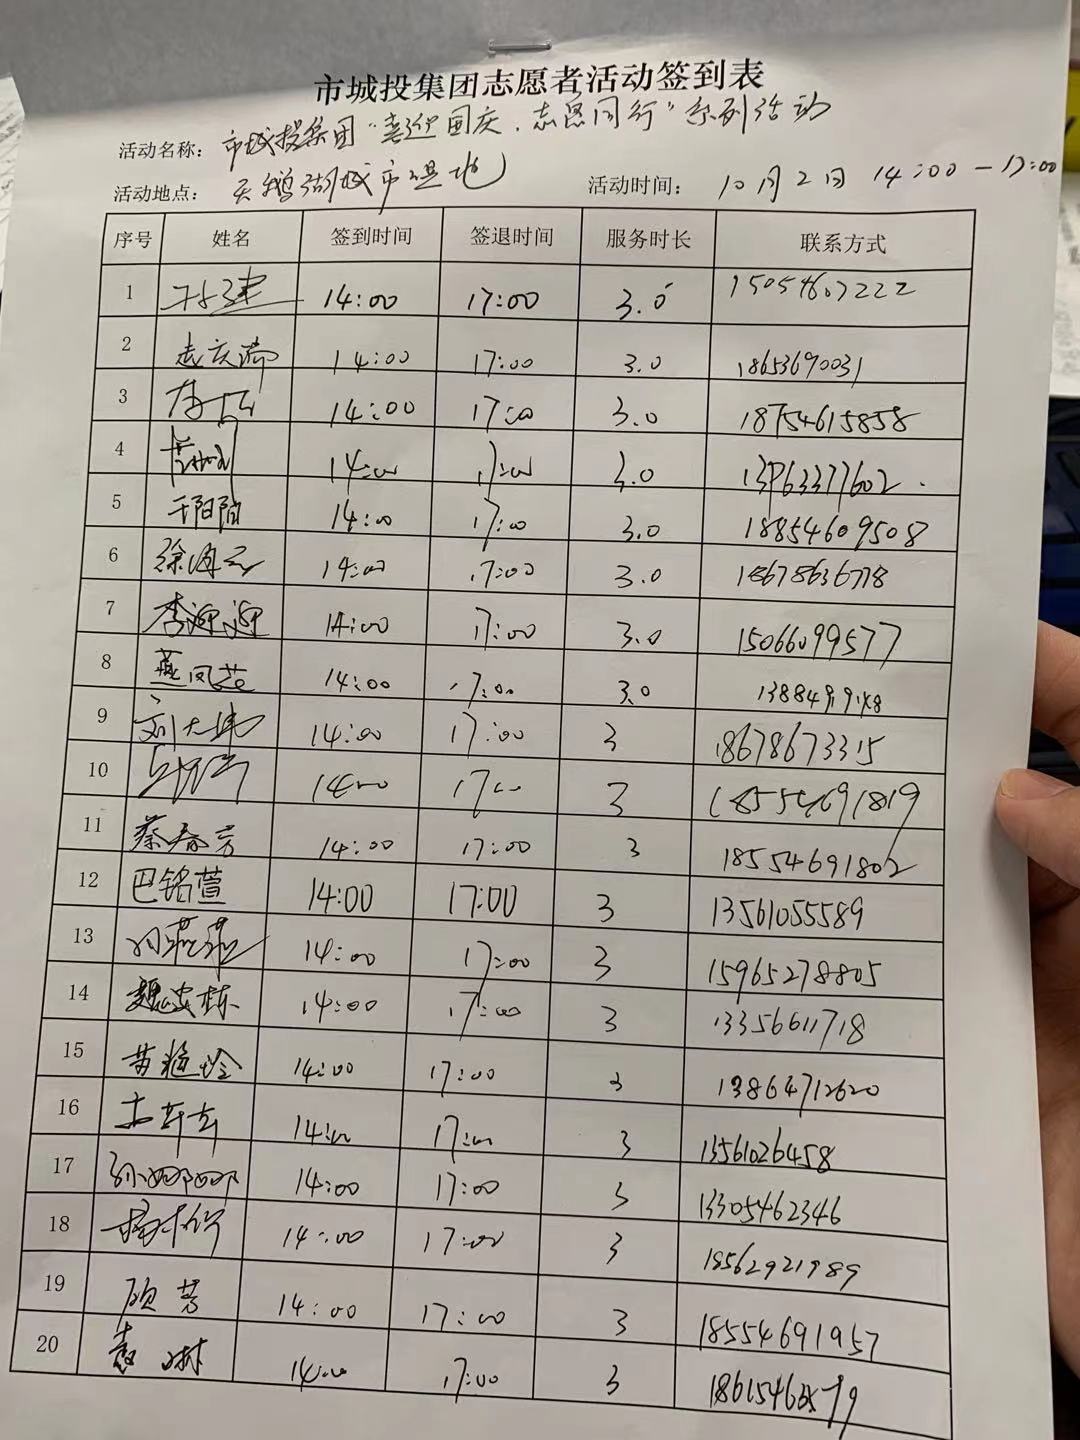 市城投集团志愿者活动签到表
活动名称: 市城投集团“喜迎国庆.志愿同行”系列活动
活动地点: 天鹅湖城市湿地 活动时间: 10月2日 14:00—17:00
序号 姓名 签到时间 签退时间 服务时长 联系方式
1 14:00 17:00 3.0 15054607222
2 14:00 17:00 3.0 18653690031
3 14:00 17:00 3.0 18754615858
4 14:00 17:00 3.0
5 阳阳 14:00 17:00 3.0 18854609508
6 徐海云 14:00 17:00 3.0 18678636778
7 李迎迎 14:00 17:00 3.0 15066099577
8 燕凤芝 14:00 17:00 3.0
9 刘大伟 14:00 17:00 3 18678673315
10 14:00 17:00 3 18554691819
11 蔡春芳 14:00 17:00 3 18554691802
12 巴铭萱 14:00 17:00 3 13561055589
13 刘菲菲 14:00 17:00 3 15965278805
14 14:00 17:00 3 13356611718
15 黄艳玲 14:00 17:00 3 13864712620
16 14:00 17:00 3 13561026458
17 孙娜娜 14:00 17:00 3 13305462346
18 14:00 17:00 3 18562921989
19 顾芳 14:00 17:00 3 18554691957
20 袁琳 14:00 17:00 3